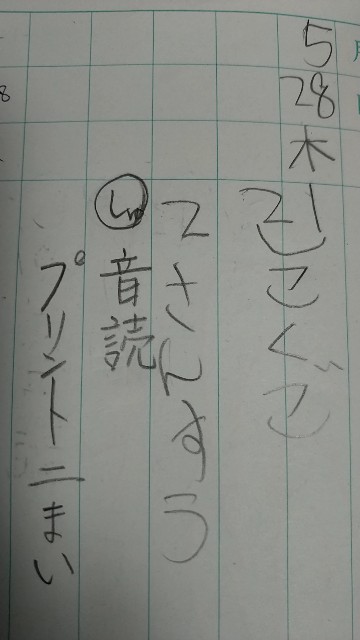 5
28
木
21こくご
2さんすう
しゅ 音読
プリント二まい